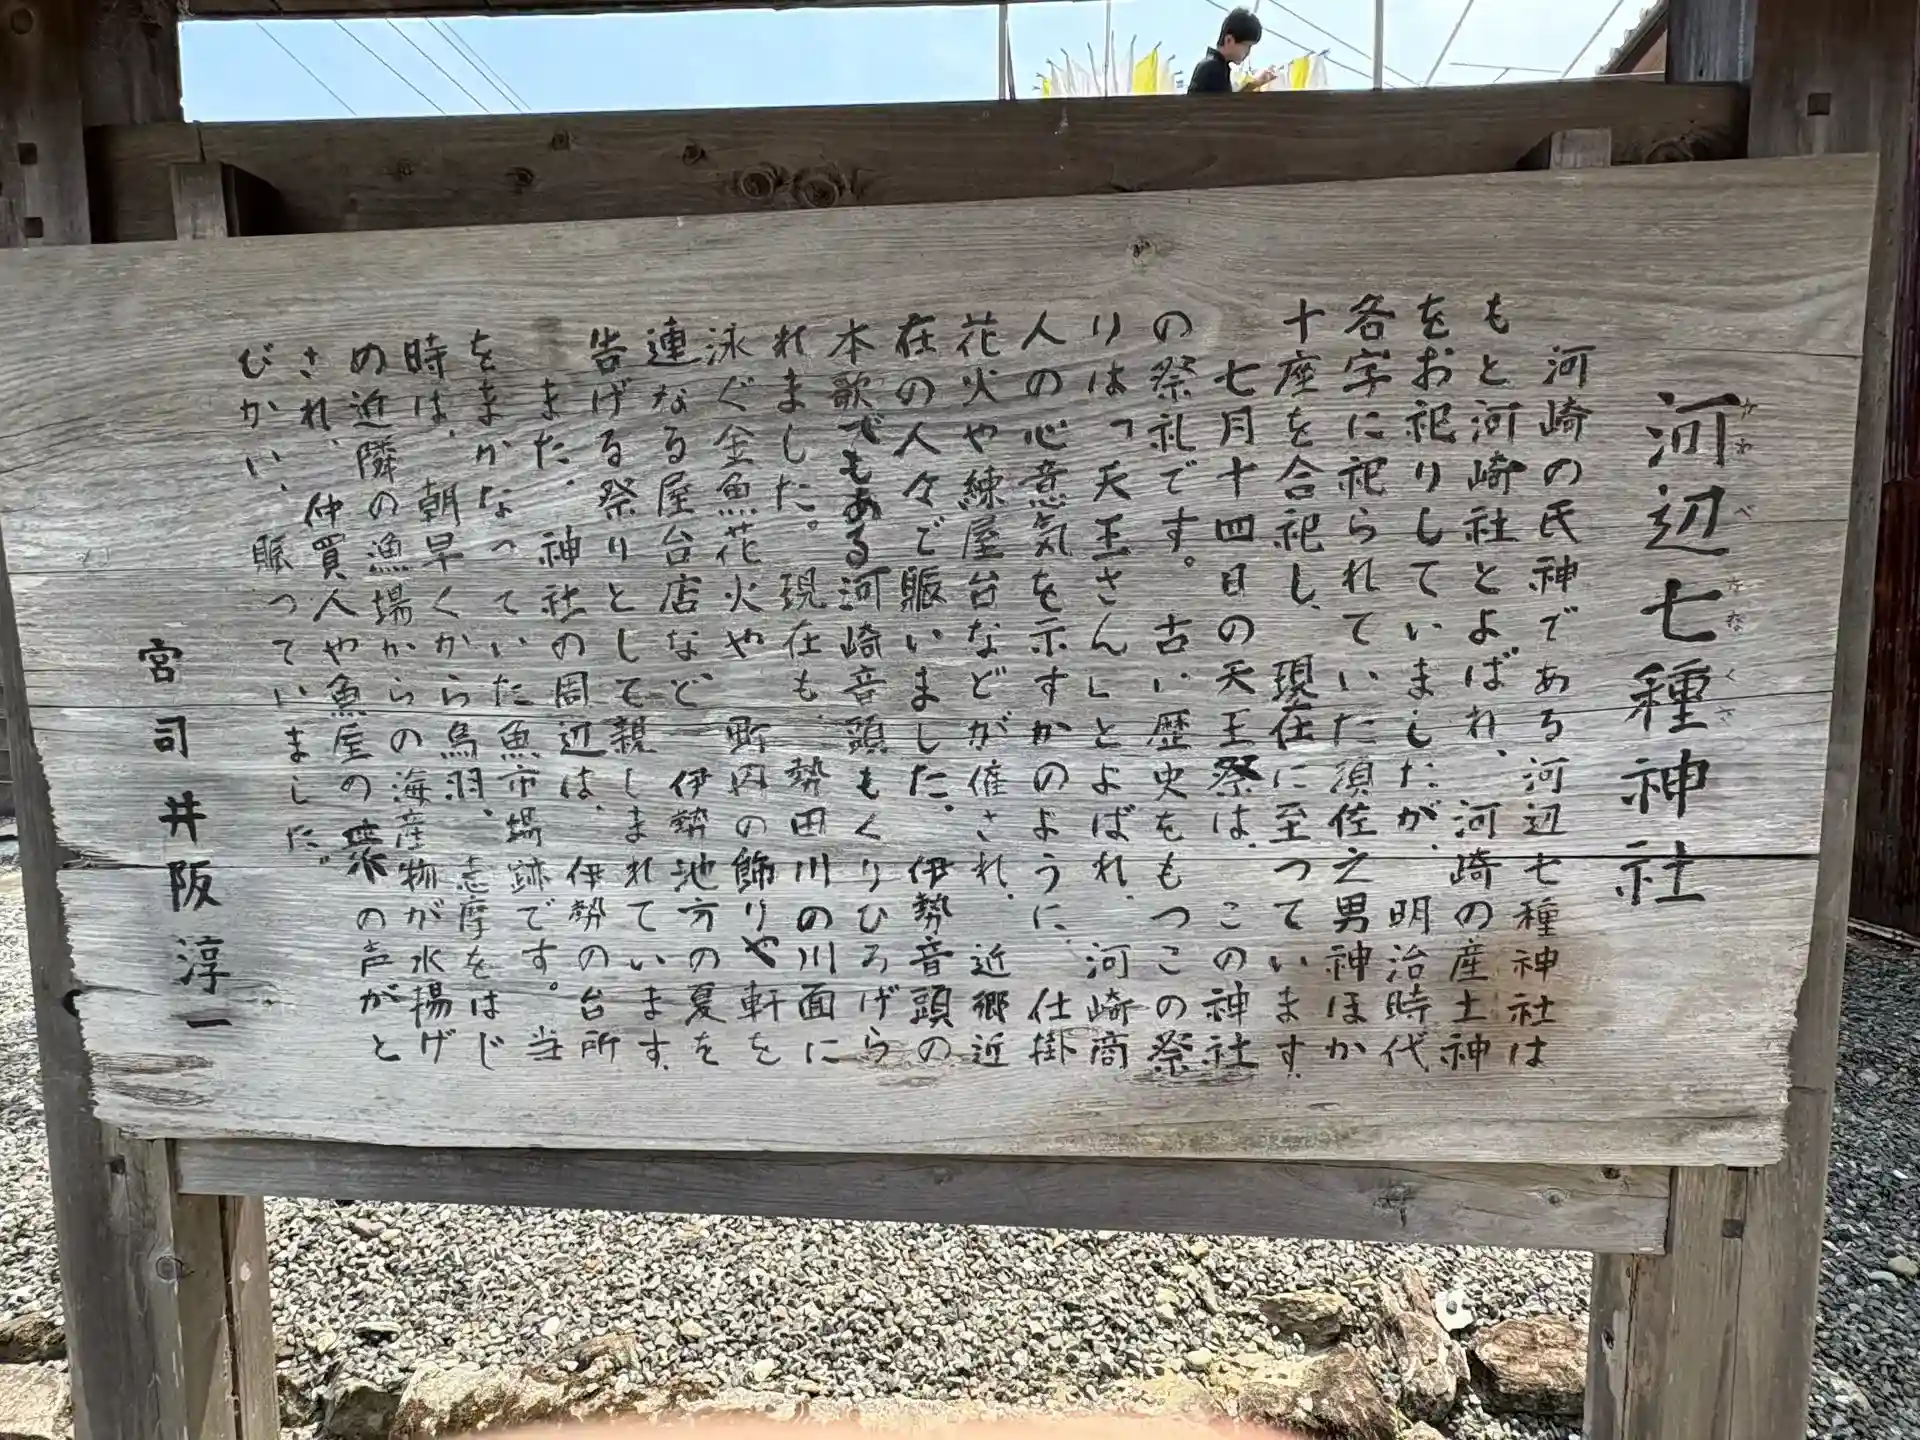 河辺七種神社
かわべななくさ
河崎の氏神である河辺七種神社は
もと河崎社とよばれ、河崎の産土神
をお祀りしていましたが、明治時代、
各字に祀られていた須佐之男神ほか
十座を合祀し、現在に至っています。
七月十四日の天王祭は、この神社
の祭礼です。古い歴史をもつこの祭
りは「天王さん」とよばれ、河崎商
人の心意気を示すかのように、仕掛
花火や練屋台などが催され、近郷近
在の人々で賑いました。伊勢音頭の
本歌でもある河崎音頭もくりひろげら
れました。現在も、勢田川の川面に
泳ぐ金魚花火や、町内の飾りや軒を
連なる屋台店など、伊勢地方の夏を
告げる祭りとして親しまれています。
また、神社の周辺は、伊勢の台所
をまかなっていた魚市場跡です。当
時は、朝早くから鳥羽、志摩をはじ
め近隣の漁場からの海産物が水揚げ
され、仲買人や魚屋の衆の声がと
びかい、賑っていました。
宮司 井阪淳一